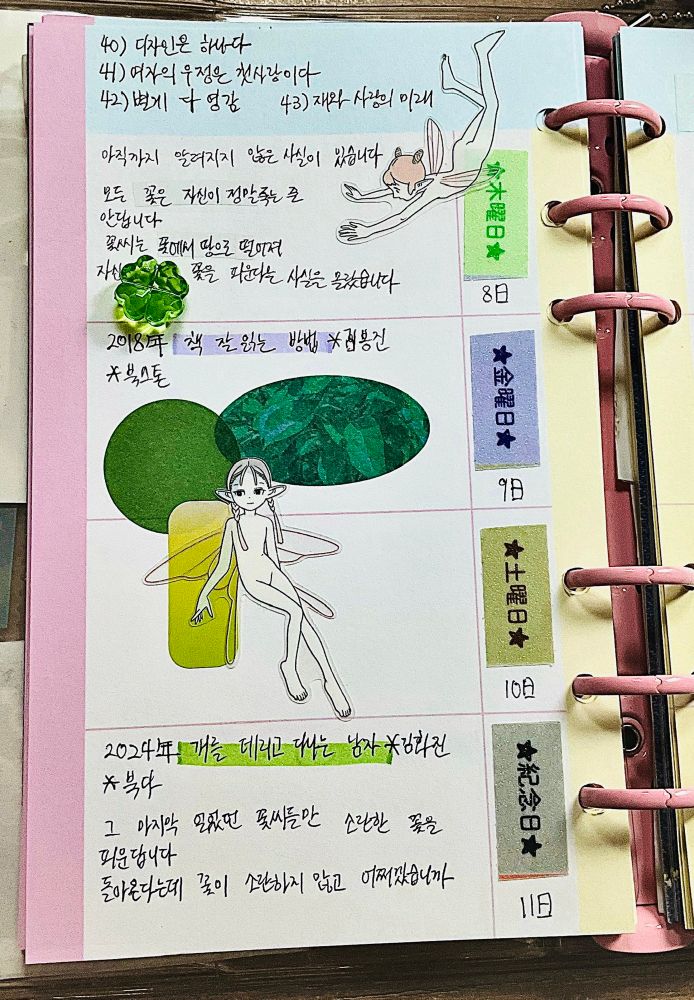 40) 디자인은 하나다
41) 여자의 우정은 첫사랑이다
42) 별게 다 영감 43) 재와 사랑의 미래
아직까지 알려지지 않은 사실이 있습니다
모든 꽃은 자신이 정말 죽는 줄
안답니다
꽃씨는 꽃에서 땅으로 떨어져
자신 꽃을 피운다는 사실은 몰랐습니다
★木曜日★
8日
2018年 책 잘 읽는 방법 *김봉진
*북스톤
★金曜日★
9日
★土曜日★
10日
2024年 개를 데리고 다니는 남자 *김화진
*북다
그 마지막 몰랐던 꽃씨들만 소란한 꽃을
피운답니다
돌아온다는데 꽃이 소란하지 않고 어쩌겠습니까
★紀念日★
11日